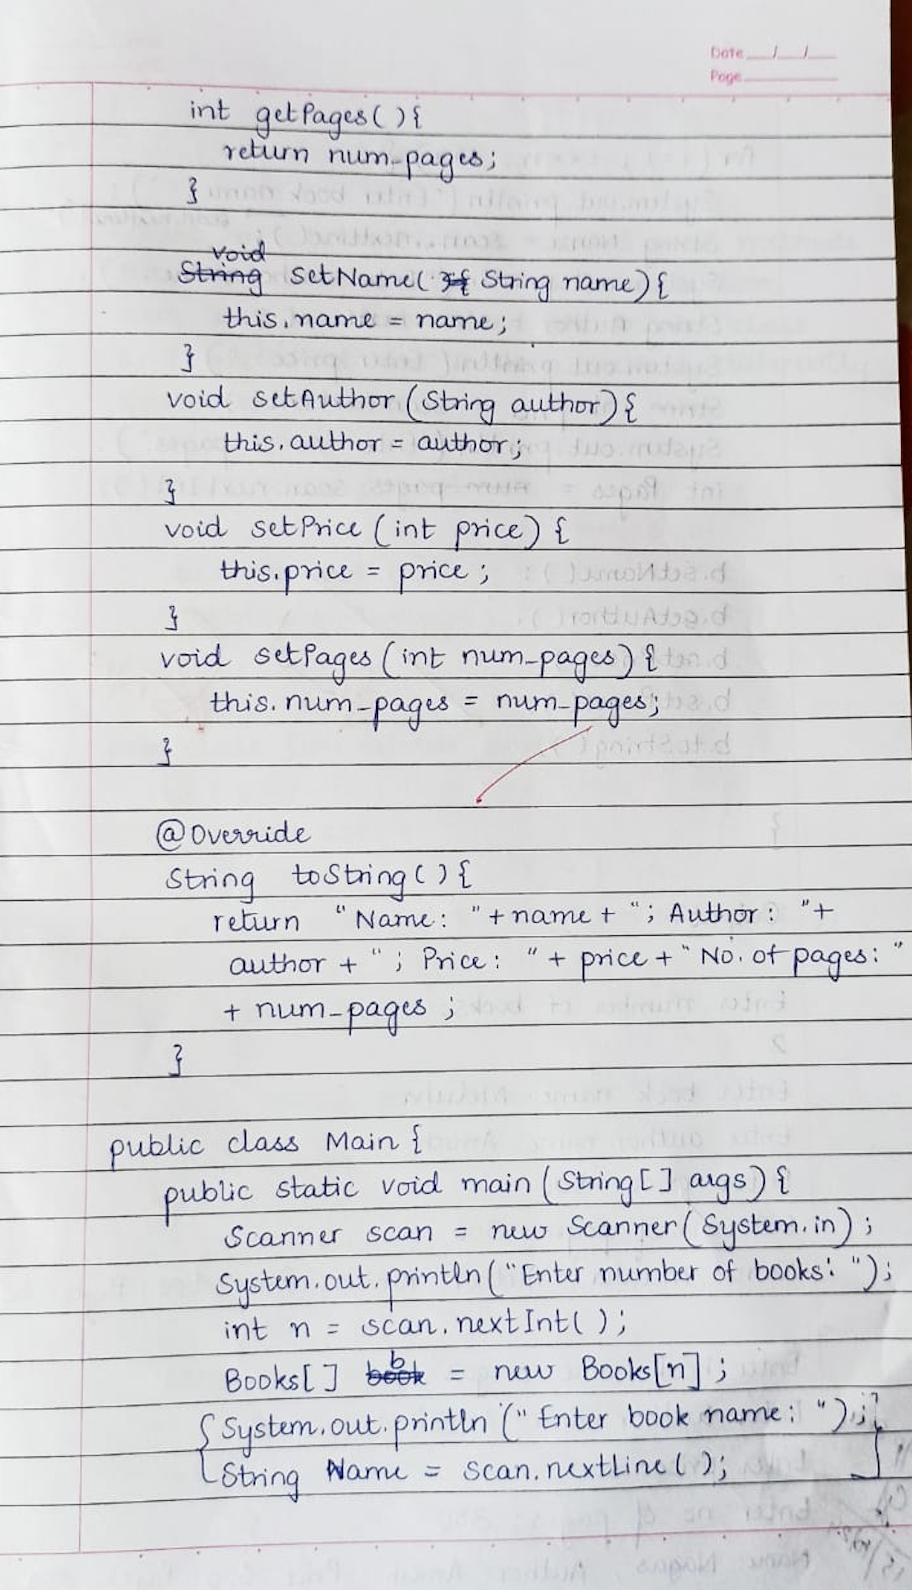 Date __/__/__
Page
int getPages(){
return num_pages;
}
void
String setName( String name){
this.name = name;
}
void setAuthor (String author){
this.author = author;
}
void setPrice (int price) {
this.price = price;
}
void setPages (int num_pages) {
this.num_pages = num_pages;
}
@Override
String toString(){
return "Name: "+name+"; Author: "+
author + "; Price: " + price + "No. of pages: "
+ num_pages ;
}
public class Main {
public static void main (String[] args) {
Scanner scan = new Scanner(System.in);
System.out.println("Enter number of books: ");
int n = scan.nextInt();
b
Books[] book = new Books[n];
System.out.println ("Enter book name: ");
String Name = scan.nextLine();